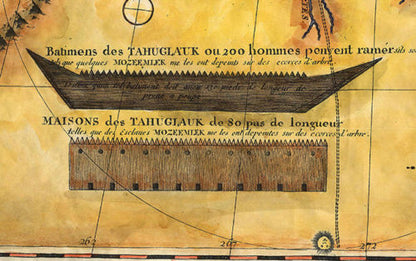 Batimens des TAHUGLAUK ou 200 hommes peuvent ramér sils so
que quelques MOZEEMLEK me les ont depeints sur des ecorces d'arbre.
de longeur de
MAISONS des TAHUGLAUK de 80 pas de longueur
telles que des Esclaves MOZEEMLEK me les ont depeintes sur des écorces d'arbre.
262
267
272